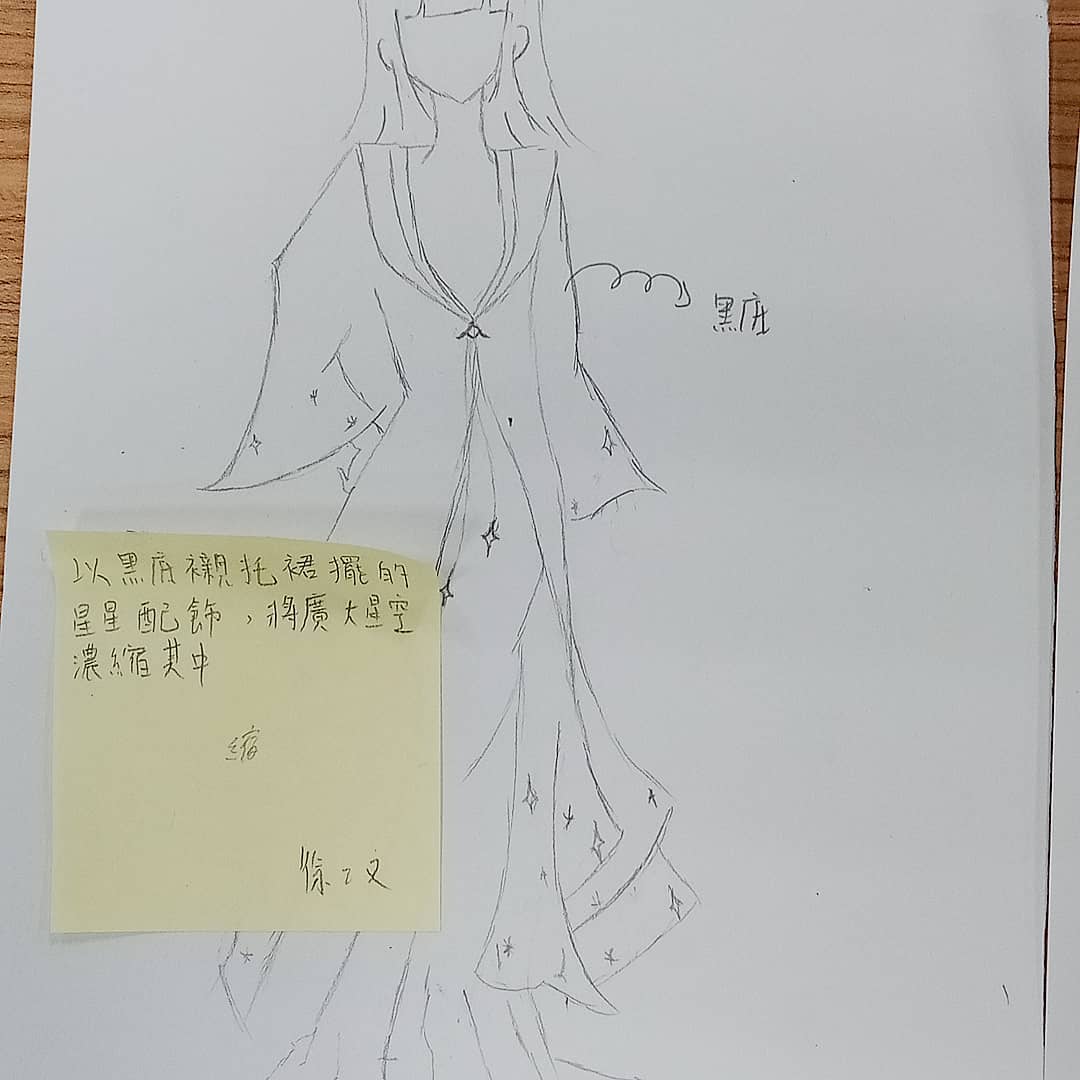 黑底
以黑底襯托裙擺的
星星配飾，將廣大星空
濃縮其中
縮
徐乙文